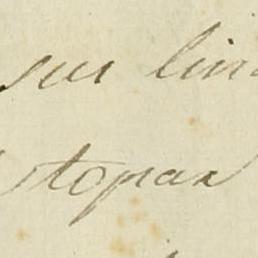 sur lin
stopan